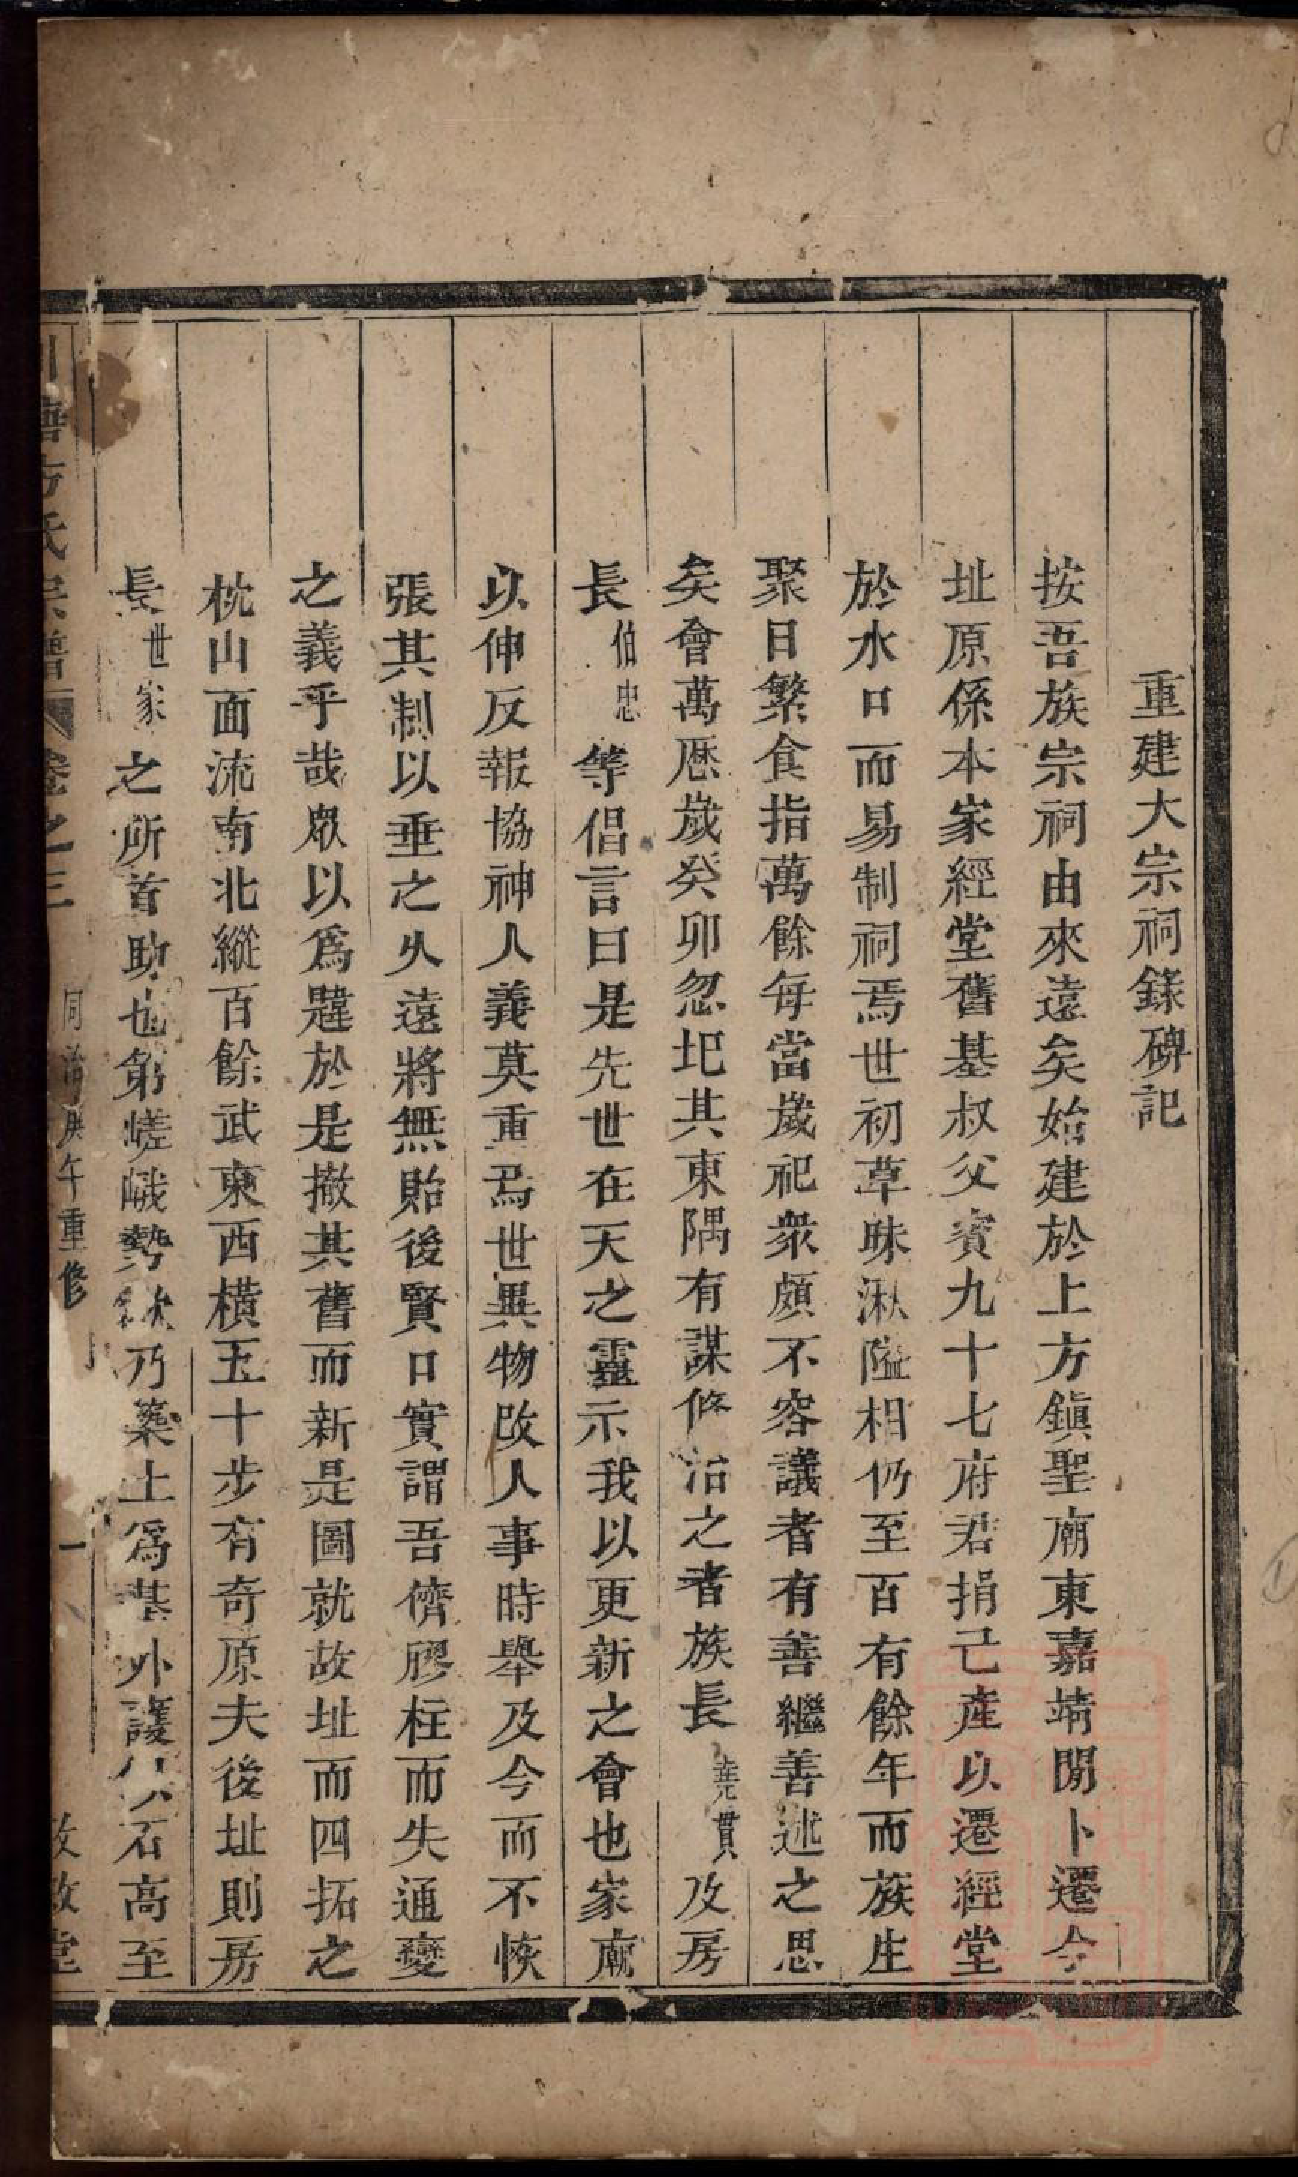 重建大宗祠錄碑記
按吾族宗祠由來遠矣始建於上方鎮聖廟東嘉靖間卜遷今
址原係本家經堂舊基叔父賓九十七府君捐己產以遷經堂
於水口而易制祠焉世初草昧湫隘相仍至百有餘年而族生
聚日繁食指萬餘每當歲祀衆頗不容議者有善繼善述之思
矣會萬曆歲癸卯忽圮其東隅有謀修治之者族長堯貫及房
長伯忠等倡言曰是先世在天之靈示我以更新之會也家廟
以伸反報協神人義莫重焉世異物改人事時舉及今而不恢
張其制以垂之久遠將無貽後賢口實謂吾儕膠柱而失通變
之義乎哉眾以爲韙於是撤其舊而新是圖就故址而四拓之
枕山面流南北縱百餘武東西橫五十步有奇原夫後址則房
長世家之所首助也第嵯峨勢欹乃築土爲基外護以石高至
方氏宗譜 卷之三 同治庚午重修 一 敦堂